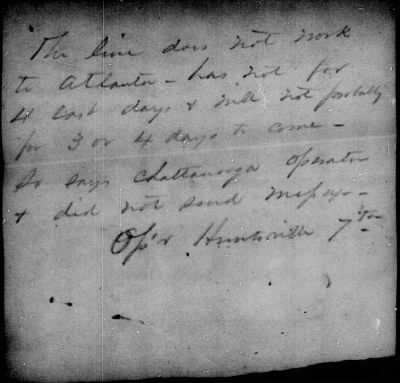 The line does not work
to Atlanta - has not for
4 last days & will not probably
for 3 or 4 days to come -
So says Chattanooga operator
& did not send message -
Op'r Huntsville 7th